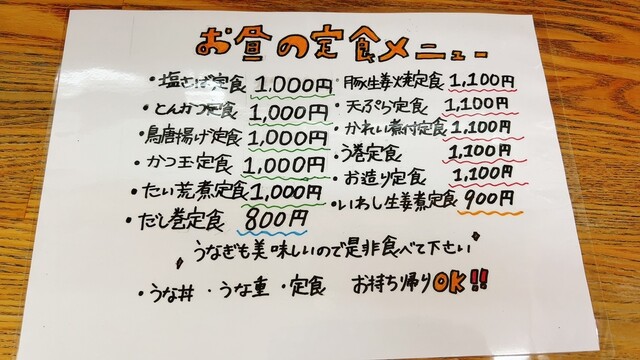 お昼の定食メニュー
・塩さば定食 1,000円
・とんかつ定食 1,000円
・鳥唐揚げ定食 1,000円
・かつ玉定食 1,000円
・たい荒煮定食 1,000円
・だし巻定食 800円
・豚生姜焼定食 1,100円
・天ぷら定食 1,100円
・かれい煮付定食 1,100円
・う巻定食 1,100円
・お造り定食 1,100円
・いわし生姜煮定食 900円
うなぎも美味しいので是非食べて下さい
・うな丼 ・うな重 ・定食 お持ち帰りOK!!